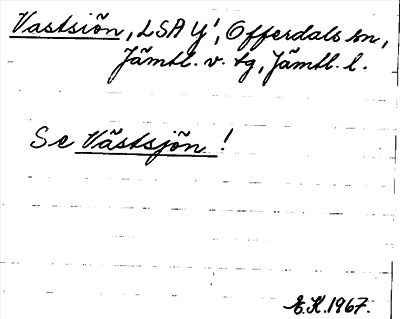 Vastsiön, LSA Y', Offerdals sn,
Jämtl. v. tg, Jämtl. l.
Se Västsjön!
E.K. 1967.